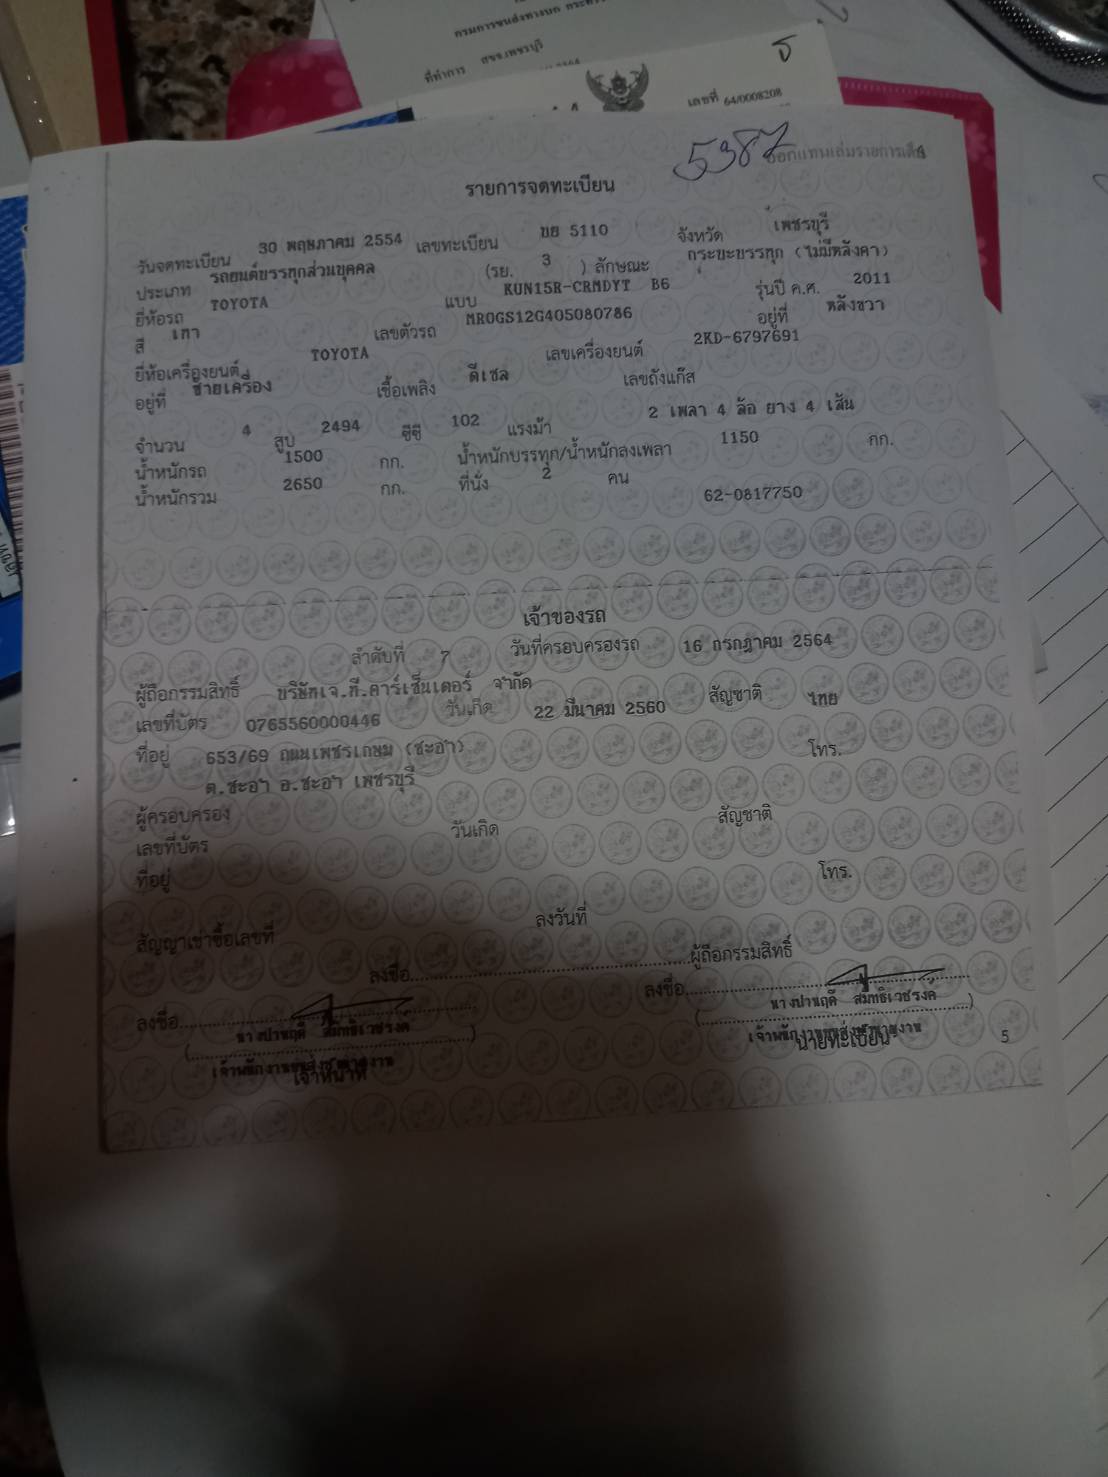 กรมการขนส่งทางบก
ที่ทำการ สขจ.เพชรบุรี
เลขที่ 64/0008208
5387
ออกแทนเล่มรายการเดิม
รายการจดทะเบียน
วันจดทะเบียน 30 พฤษภาคม 2554 เลขทะเบียน บย 5110 จังหวัด เพชรบุรี
ประเภท รถยนต์บรรทุกส่วนบุคคล (รย. 3 ) ลักษณะ กระบะบรรทุก (ไม่มีหลังคา)
ยี่ห้อรถ TOYOTA แบบ KUN15R-CRMDYT B6 รุ่นปี ค.ศ. 2011
สี เทา เลขตัวรถ MR0GS12G405080786 อยู่ที่ หลังขวา
ยี่ห้อเครื่องยนต์ TOYOTA เลขเครื่องยนต์ 2KD-6797691
อยู่ที่ ซ้ายเครื่อง เชื้อเพลิง ดีเซล เลขถังแก๊ส
จำนวน 4 สูบ 2494 ซีซี 102 แรงม้า 2 เพลา 4 ล้อ ยาง 4 เส้น
น้ำหนักรถ 1500 กก. น้ำหนักบรรทุก/น้ำหนักลงเพลา 1150 กก.
น้ำหนักรวม 2650 กก. ที่นั่ง 2 คน
62-0817750
เจ้าของรถ
ลำดับที่ 7 วันที่ครอบครองรถ 16 กรกฎาคม 2564
ผู้ถือกรรมสิทธิ์ บริษัทเจ.ที.คาร์เซ็นเตอร์ จำกัด
เลขที่บัตร 0765560000446 วันเกิด 22 มีนาคม 2560 สัญชาติ ไทย
ที่อยู่ 653/69 ถนนเพชรเกษม (ชะอำ) โทร.
ต.ชะอำ อ.ชะอำ เพชรบุรี
ผู้ครอบครอง
เลขที่บัตร วันเกิด สัญชาติ
ที่อยู่ โทร.
สัญญาเช่าซื้อเลขที่ ลงวันที่
ลงชื่อ ผู้ถือกรรมสิทธิ์
ลงชื่อ ลงชื่อ
เจ้าหน้าที่ นายทะเบียน
5